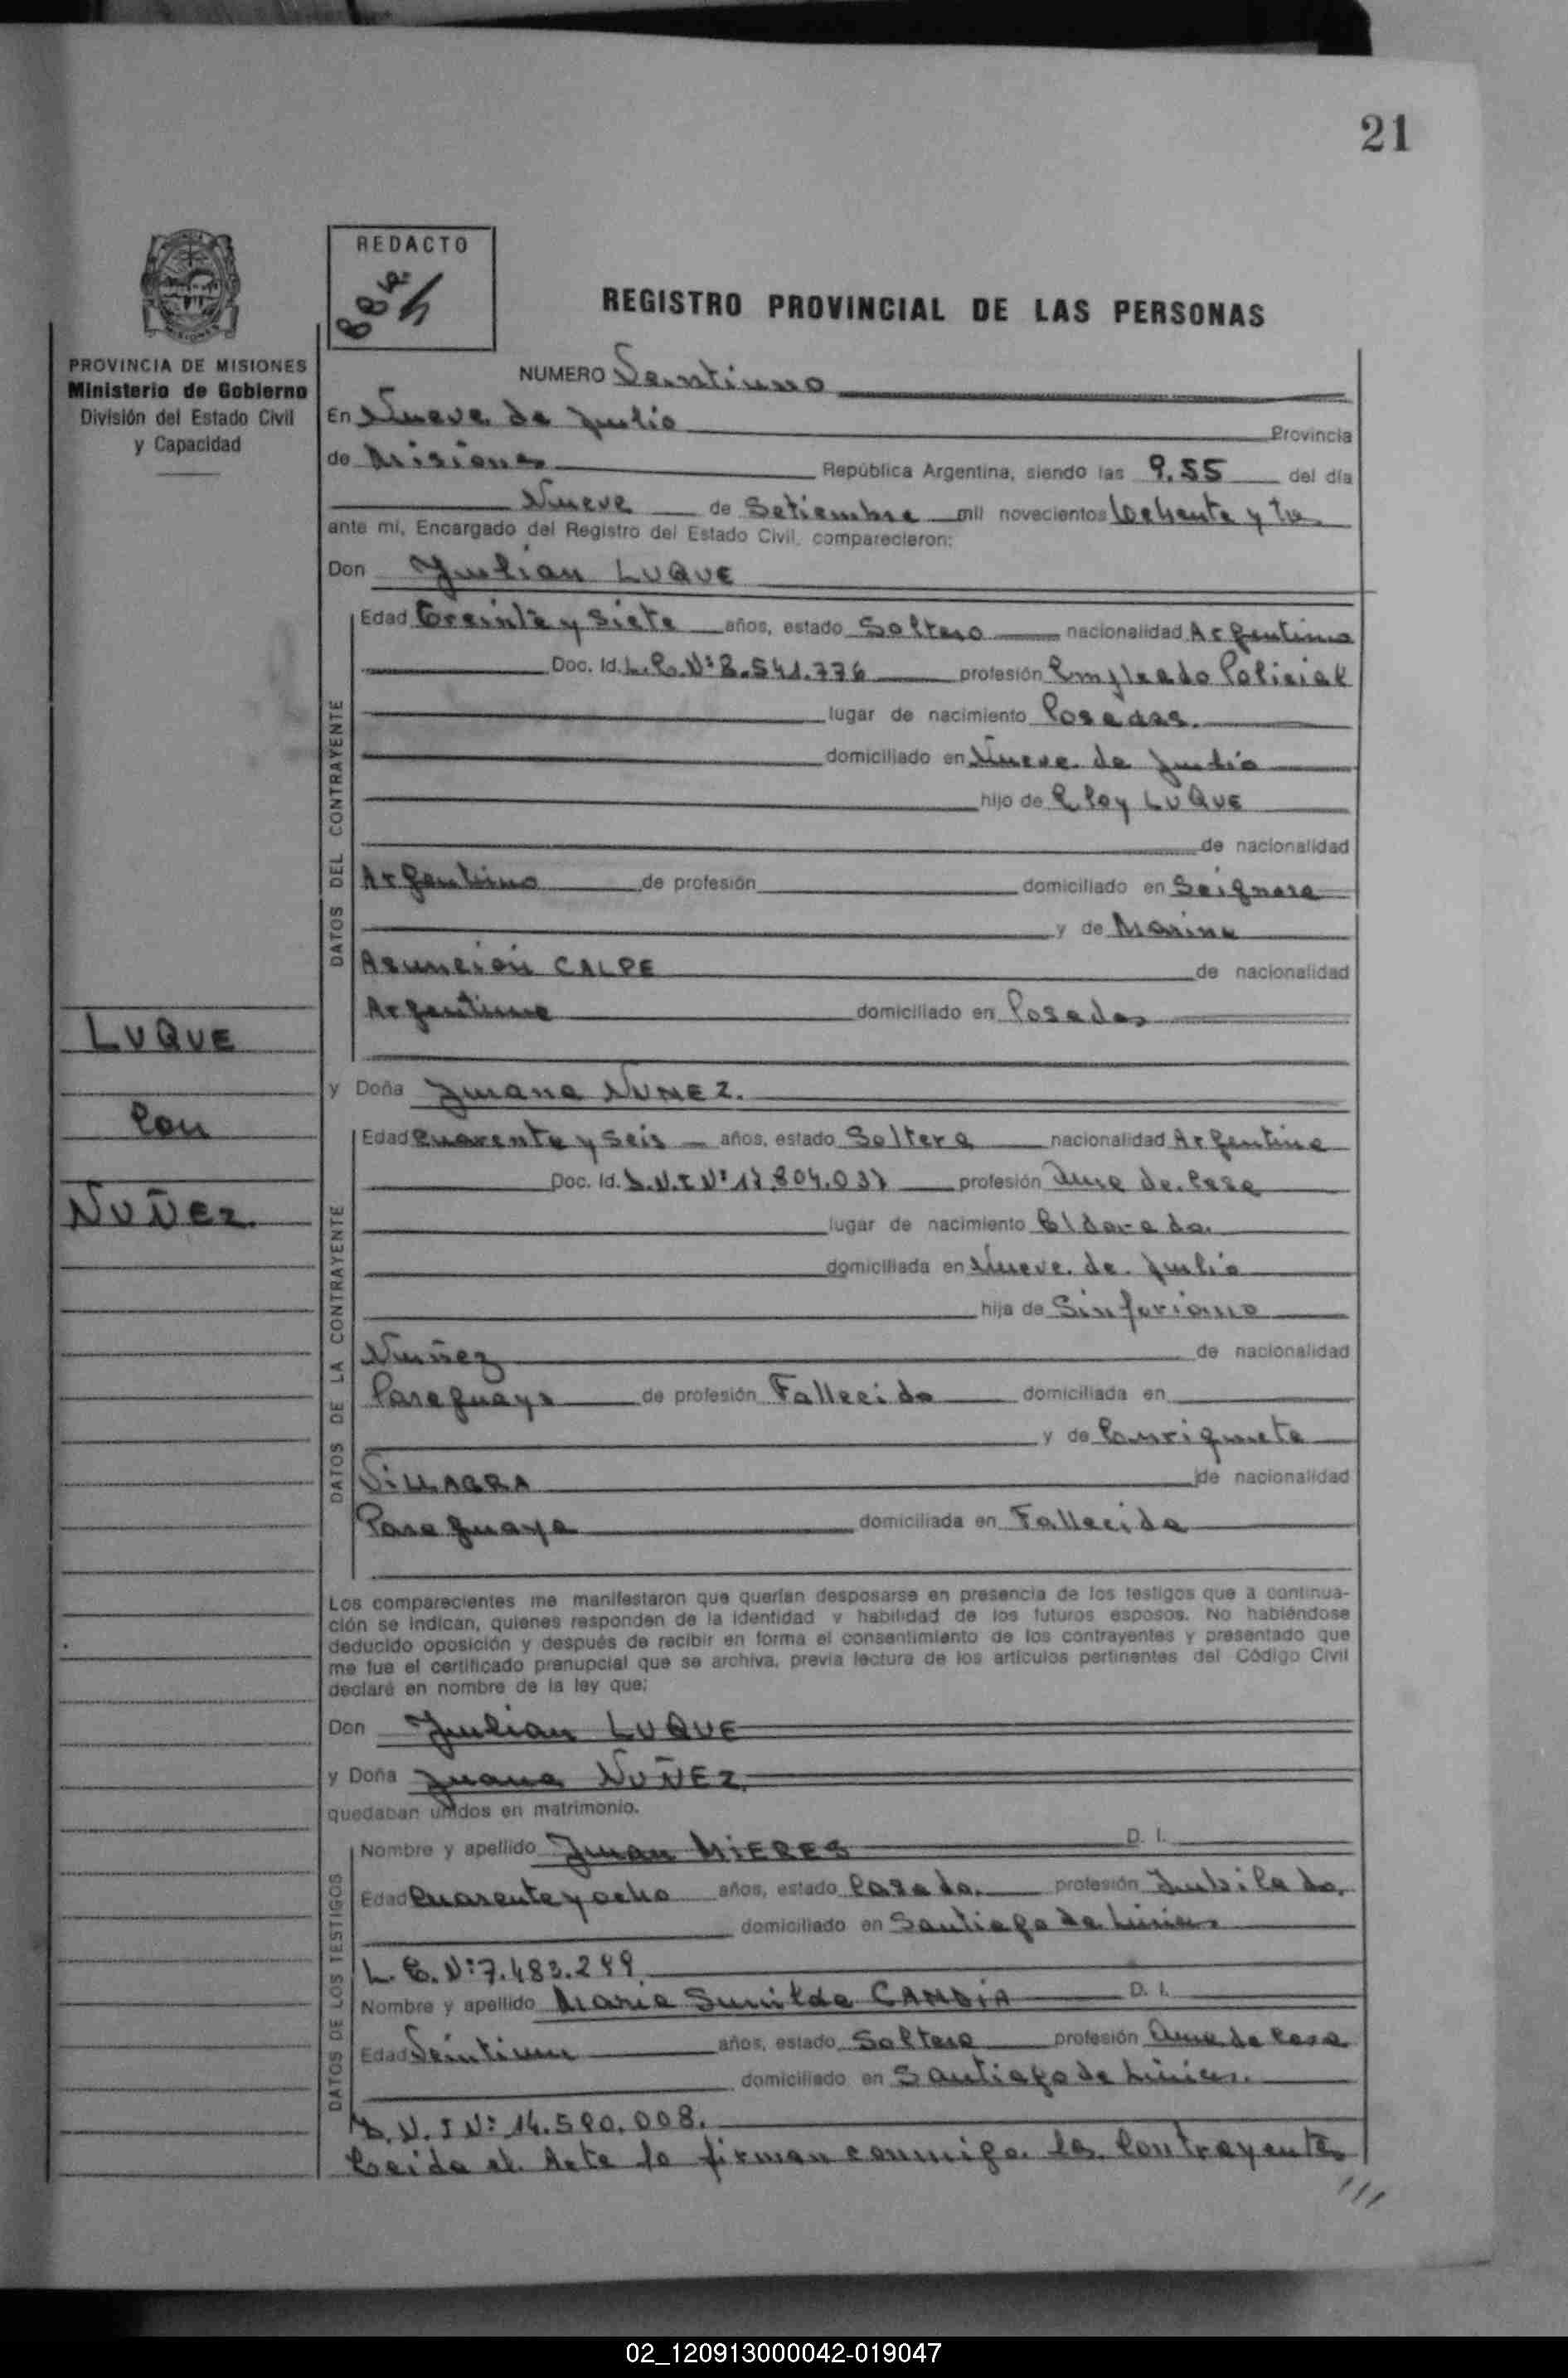 21
REDACTO
REGISTRO PROVINCIAL DE LAS PERSONAS
PROVINCIA DE MISIONES
Ministerio de Gobierno
División del Estado Civil
y Capacidad
NUMERO Veintiuno
En Nueve de Julio Provincia
de Misiones República Argentina, siendo las 9.55 del día
Nueve de Setiembre mil novecientos Ochenta y tres
ante mi, Encargado del Registro del Estado Civil, comparecieron:
Don Julian LUQUE
DATOS DEL CONTRAYENTE
Edad Treinta y Siete años, estado Soltero nacionalidad Argentina
Doc. Id. L.E. Nº 8.541.776 profesión Empleado Policial
lugar de nacimiento Posadas.
domiciliado en Nueve de Julio
hijo de Eloy LUQUE
de nacionalidad
Argentino de profesión domiciliado en
y de Marina
Asunción CALPE de nacionalidad
Argentina domiciliado en Posadas
LUQUE
Con
NUÑEZ.
y Doña Juana NUÑEZ.
DATOS DE LA CONTRAYENTE
Edad Cuarenta y Seis años, estado Soltera nacionalidad Argentina
Doc. Id. D.N.I Nº profesión Ama de Casa
lugar de nacimiento Eldorado.
domiciliada en Nueve de Julio
hija de Sinforiano
Nuñez de nacionalidad
Paraguaya de profesión Fallecido domiciliada en
y de Enriqueta
VILLAGRA de nacionalidad
Paraguaya domiciliada en Fallecida
Los comparecientes me manifestaron que querían desposarse en presencia de los testigos que a continua-
ción se indican, quienes responden de la identidad y habilidad de los futuros esposos. No habiéndose
deducido oposición y después de recibir en forma el consentimiento de los contrayentes y presentado que
me fue el certificado prenupcial que se archiva, previa lectura de los artículos pertinentes del Código Civil
declaré en nombre de la ley que:
Don Julian LUQUE
y Doña Juana NUÑEZ.
quedaban unidos en matrimonio.
DATOS DE LOS TESTIGOS
Nombre y apellido Juan MIERES D. I.
Edad Cuarenta y ocho años, estado Casado. profesión Jubilado.
domiciliado en Santiago de Liniers
L. E. Nº 7.483.249
Nombre y apellido Maria Sunilda CANDIA D. I.
Edad Veintiun años, estado Soltera profesión Ama de Casa
domiciliado en Santiago de Liniers.
D. N. I Nº 14.590.008.
Leida el Acta la firman conmigo los Contrayentes
///
02_120913000042-019047